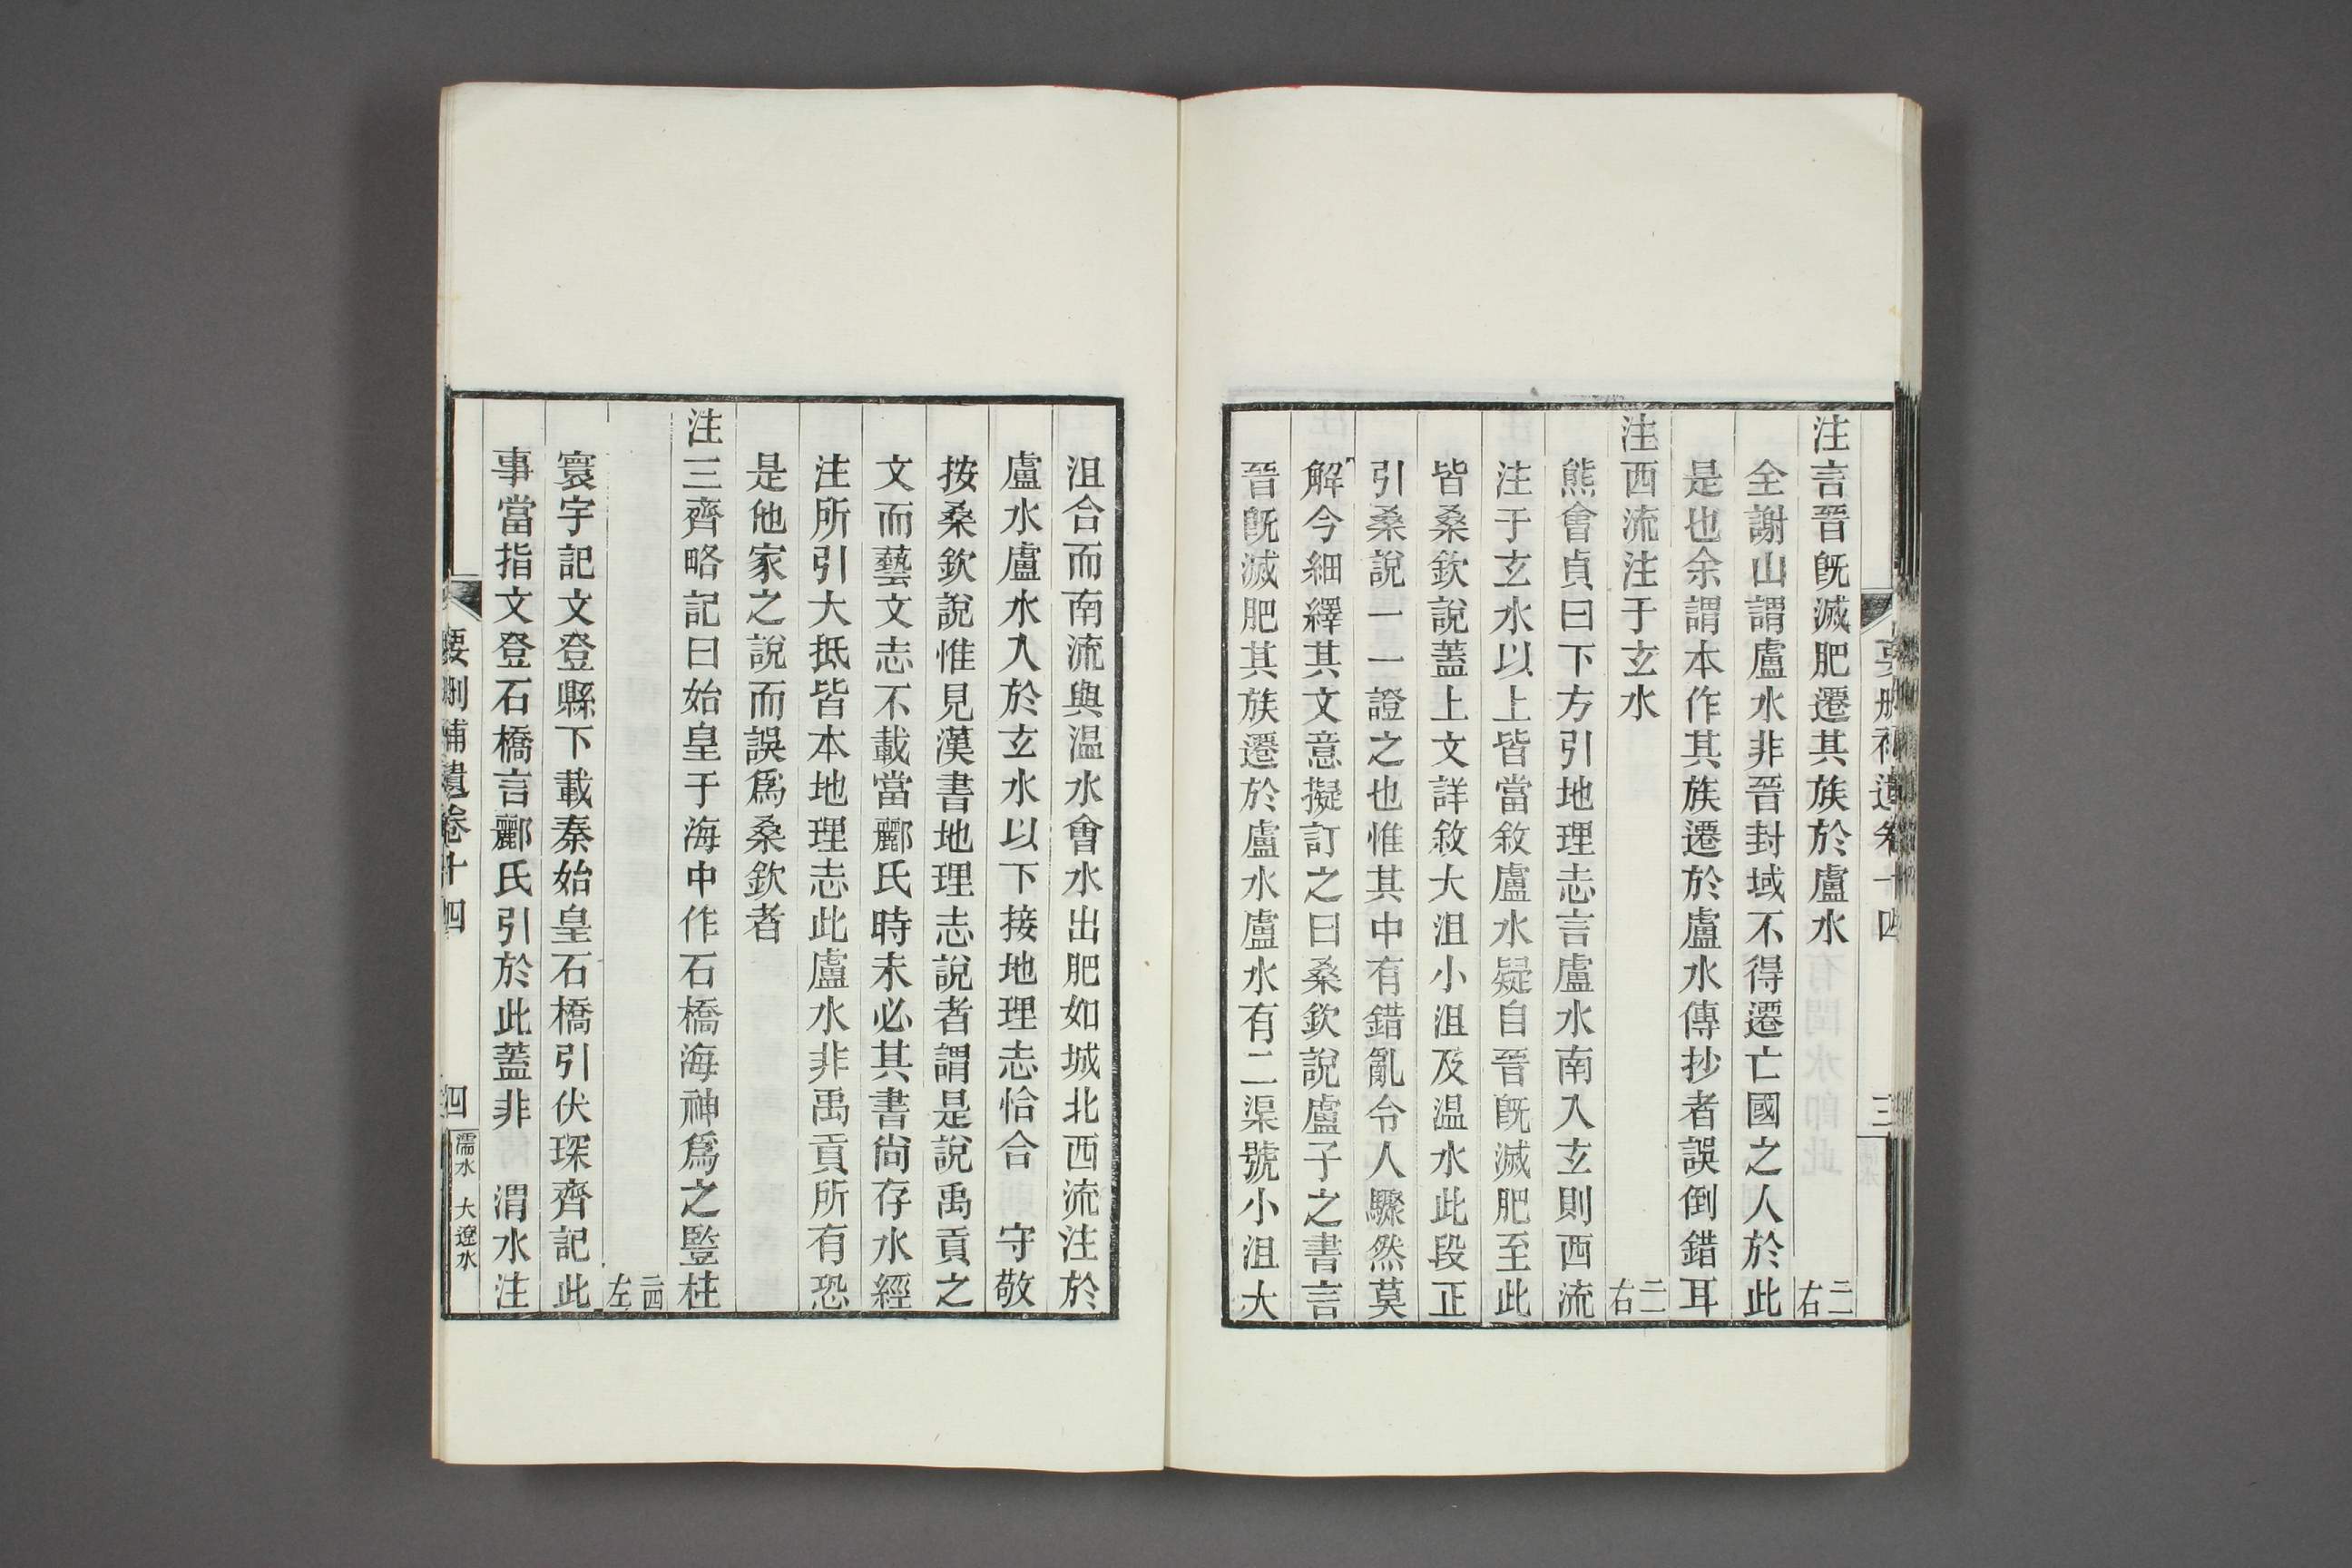 注言晉旣滅肥遷其族於盧水 二二右
全謝山謂盧水非晉封域不得遷亡國之人於此
是也余謂本作其族遷於盧水傳抄者誤倒錯耳
注西流注于玄水 二二右
熊會貞曰下方引地理志言盧水南入玄則西流
注于玄水以上皆當敘盧水疑自晉旣滅肥至此
皆桑欽說蓋上文詳敘大沮小沮及温水此段正
引桑說一一證之也惟其中有錯亂令人驟然莫
解今細繹其文意擬訂之曰桑欽說盧子之書言
晉旣滅肥其族遷於盧水盧水有二渠號小沮大
沮合而南流與温水會水出肥如城北西流注於
盧水盧水入於玄水以下接地理志恰合 守敬
按桑欽說惟見漢書地理志說者謂是說禹貢之
文而藝文志不載當酈氏時未必其書尚存水經
注所引大抵皆本地理志此盧水非禹貢所有恐
是他家之說而誤爲桑欽者
注三齊略記曰始皇于海中作石橋海神爲之豎柱
二四左
寰宇記文登縣下載秦始皇石橋引伏琛齊記此
事當指文登石橋言酈氏引於此蓋非 渭水注
要刪補遺卷十四 四 濡水 大遼水